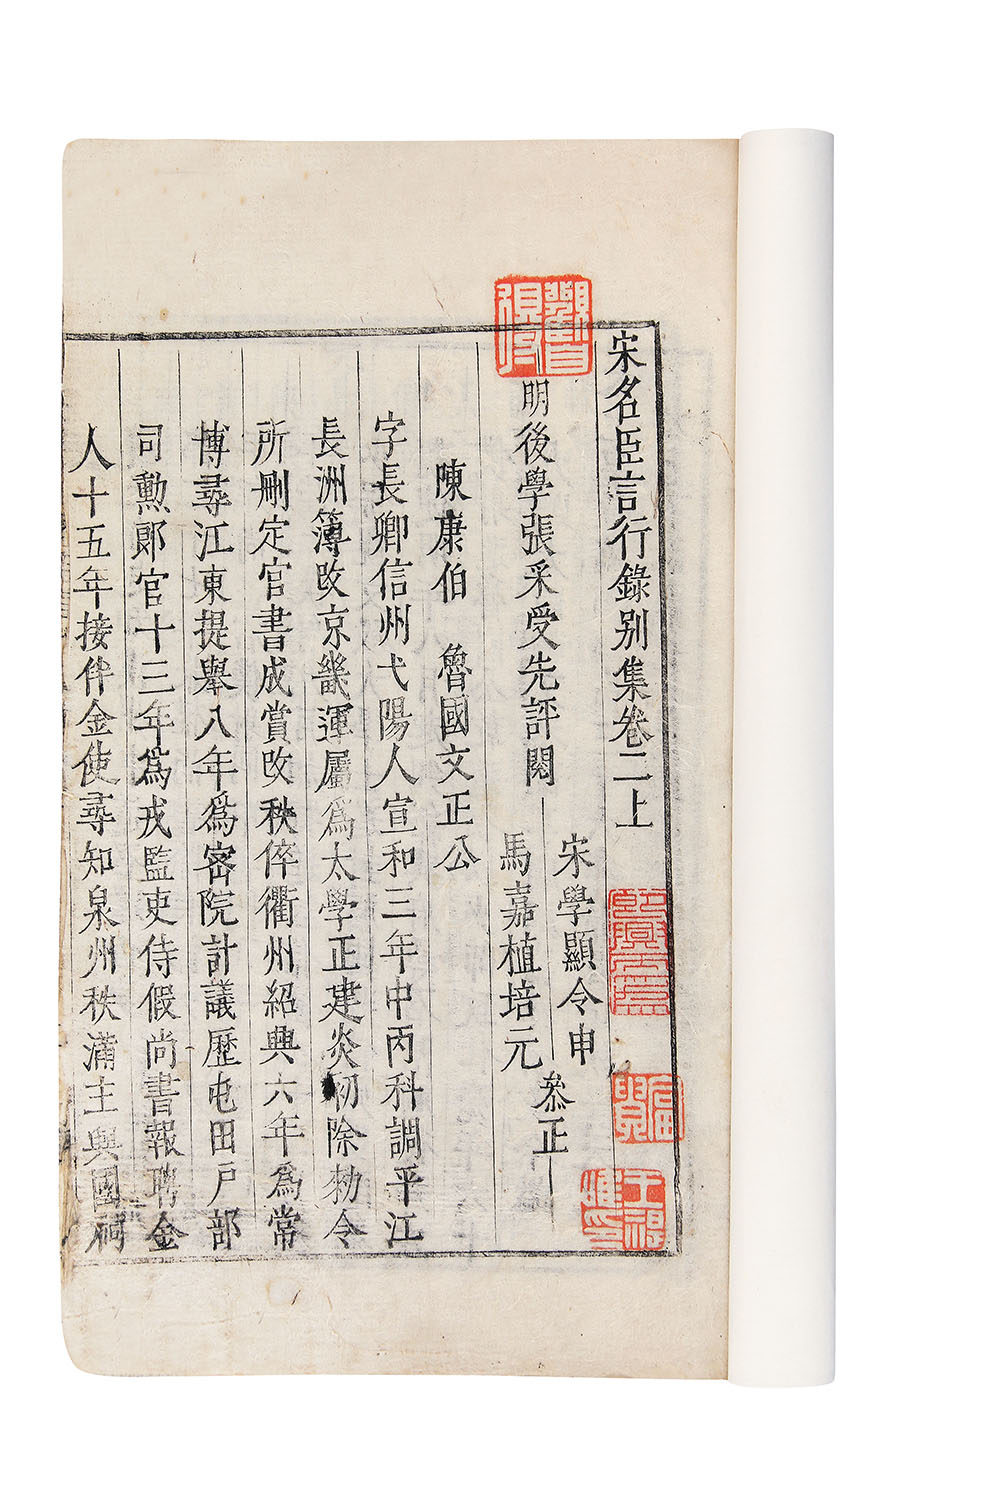 宋名臣言行錄別集卷二上
明後學張采受先評閱
宋學顯令申
馬嘉植培元
叅正
陳康伯　魯國文正公
字長卿信州弋陽人宣和三年中丙科調平江
長洲簿改京畿運屬爲太學正建炎初除勑令
所刪定官書成賞改秩倅衢州紹興六年爲常
博尋江東提舉八年爲密院計議歷屯田戶部
司勲郎官十三年爲戎監吏侍假尚書報聘金
人十五年接伴金使尋知泉州秩滿主興國祠